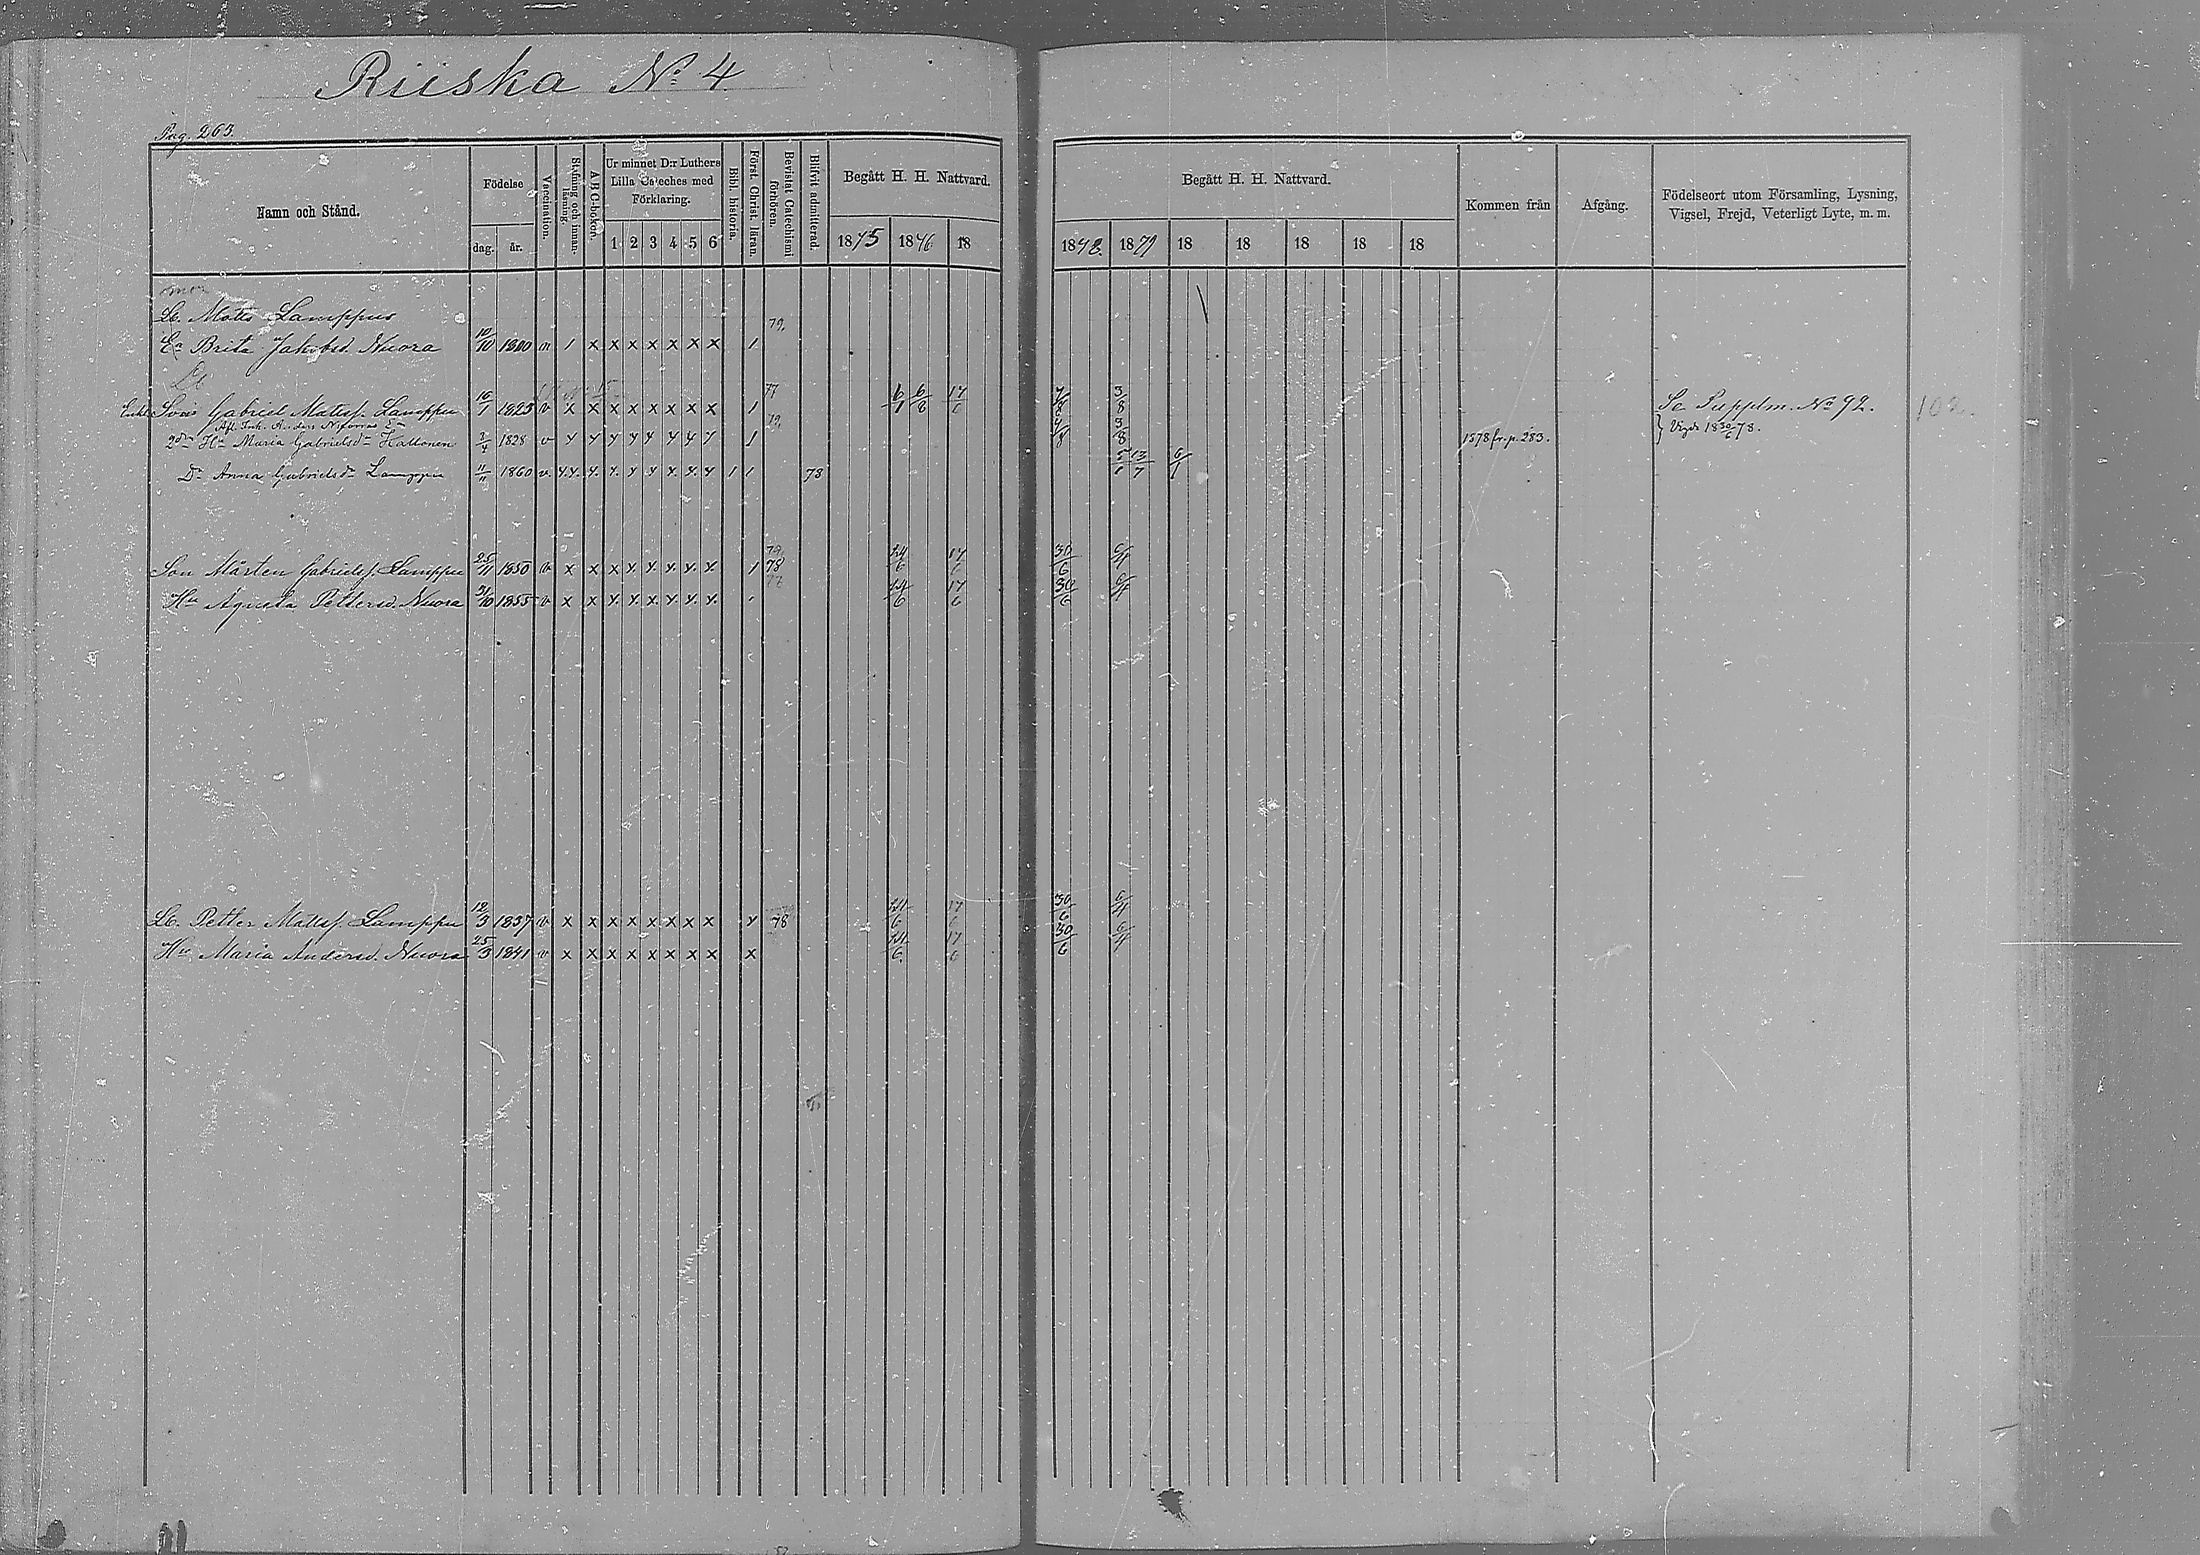 Riiska No 4
Pag. 263.
Namn och Stånd.
Födelse
dag. år.
Vaccination.
Stafning och innan-läsning.
A B C-boken.
Ur minnet D:r Luthers
Lilla Cateches med
Förklaring.
1 2 3 4 5 6
Bibl. historia.
Först. Christ. läran.
Bevistat Catechismi förhören.
Blifvit admitterad.
Begått H. H. Nattvard.
1875 1876 18
Begått H. H. Nattvard.
1878. 1879 18 18 18 18 18
Kommen från
Afgång.
Födelseort utom Församling, Lysning,
Vigsel, Frejd, Veterligt Lyte, m. m.
Lb. Matts Lamppus
79.
Ea Brita Jakobsd. Nuora 10/10 1800 n 1 x x x x x x x 1
Lb
77
Enkl. Son Gabriel Matsss. Lamppu 16/1 1825 v x x x x x x x x 1 6/1 6/8 17/6 3/8 Se Supplm. No 92. 102.
79.
2dra Hu Maria Gabrielsdr Kallonen 3/4 1828 v x x x x x x x x 1 3/8 1878 fr. p. 283. } Vigde 18 30/6 78.
Dr Anna Gabrielsdr Lamppu 11/11 1860 v. x x. x. x. x x x. x. x 1 1 78 13/7 6/1
79.
Son Mårten Gabrielss. Lamppu 25/11 1850 v x x x x. x. x. x. x 1 78 24/6 17/6 30/6 6/4
Hu Agneta Pettersd. Nuora 31/10 1855 v x x x. x. x. x x. x. 24/6 17/6 30/6 6/4
Lb. Petter Matsss. Lamppu 12/3 1837 v x x x x x x x x x 78 24/6 17/6 30/6 6/4
Hu Maria Andersd. Nuora 25/3 1841 v x x x x x x x x x 24/6 17/6 30/6 6/4